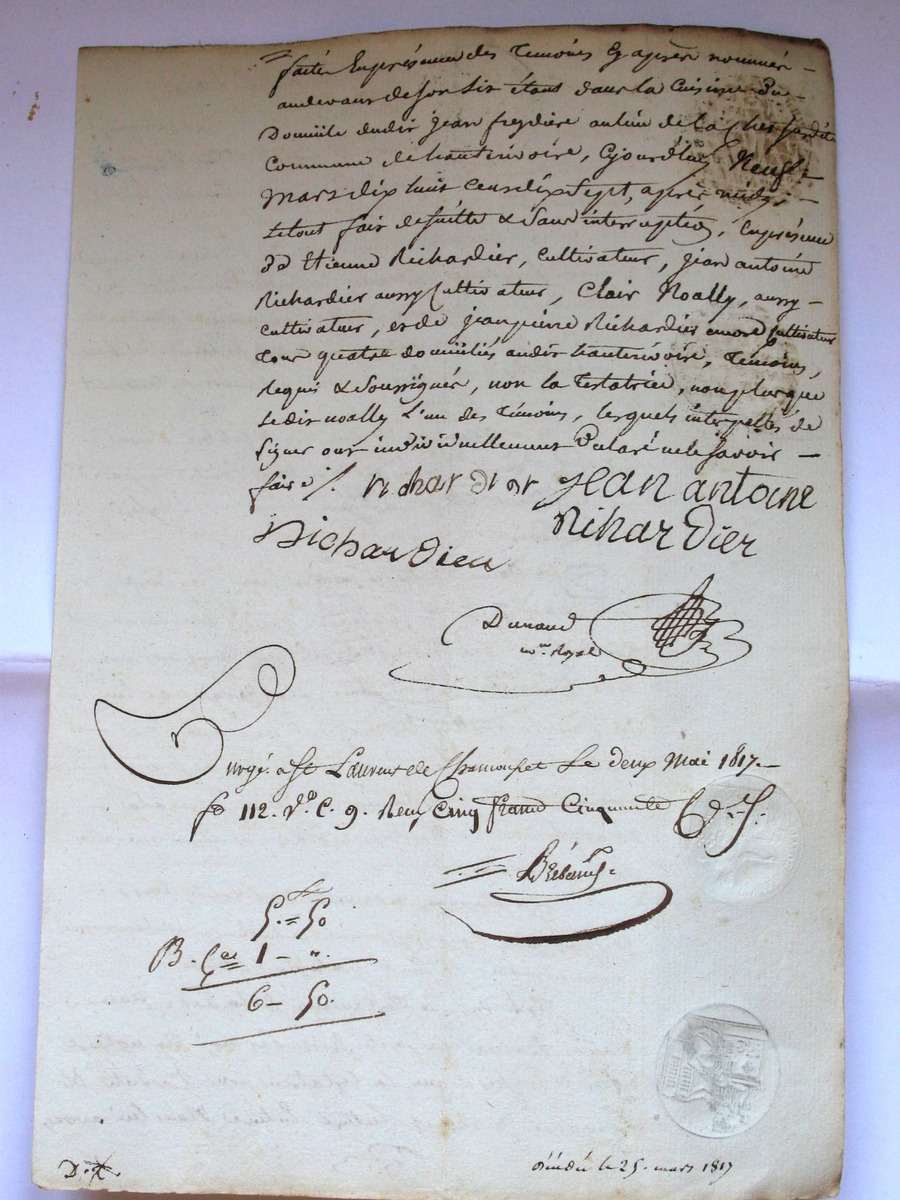 faite En présence des Temoins Cy après nommés –
audevant de son lit étant dans la Cuisine du –
Domicile dudit jean freydière au lieu de la
Commune de hauterivoire, Cejourdhuy Neuf
Mars dix huit cent dix Sept, après midy, –
Le tout fait desuitte & Sans interruption, En présence
d'Etienne Richardier, Cultivateur, jean antoine
Richardier aussy Cultivateur, Clair Noally, aussy –
cultivateur, et de jean pierre Richardier encore Cultivateur
Tous quatre domiciliés audit hauterivoire, Témoins,
Requis & Soussignés, non la Testatrice, non plus que
Ledit noally L'un des Témoins, lesquels interpellés de
Signer ont individuellement Déclaré ne le Savoir –
faire /. richardier Jean antoine
Richardier
Richardier
Durand
nore. Royal
Enregé. a St Laurent de Chamousset Le deux Mai 1817. –
fo 112. Vo C. 9. Reçu Cinq francs Cinquante
5. = 50
1 – ".
6 – 50.
D. X.
25. mars 1817